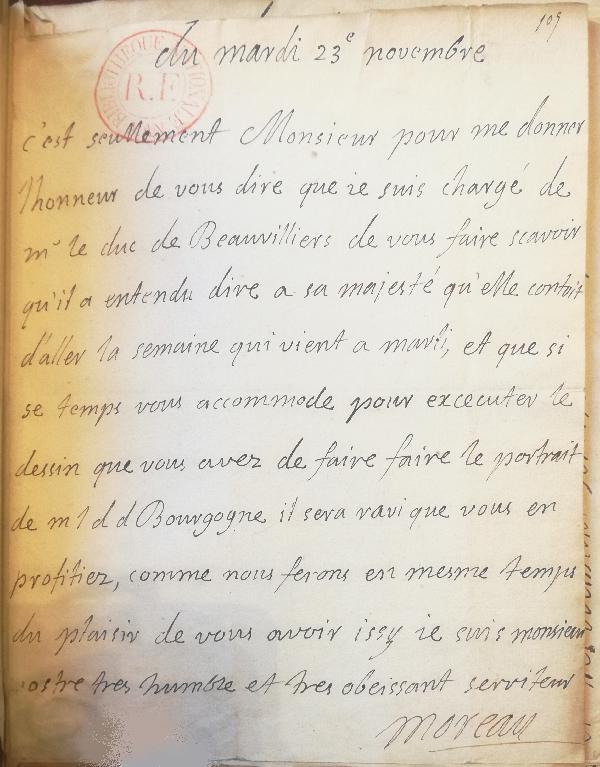 109
du mardi 23e novembre
BIBLIOTHEQUE NATIONALE
R.F.
c'est seullement Monsieur pour me donner
lhonneur de vous dire que ie suis chargé de
mr le duc de Beauvilliers de vous faire scavoir
qu'il a entendu dire a sa majesté qu'elle contoit
d'aller la semaine qui vient a marli, et que si
se temps vous accommode pour excecuter le
dessin que vous avez de faire faire le portrait
de m l d d Bourgogne il sera ravi que vous en
profitiez, comme nous ferons en mesme temps
du plaisir de vous avoir issy ie suis monsieur
vostre tres humble et tres obeissant serviteur
moreau